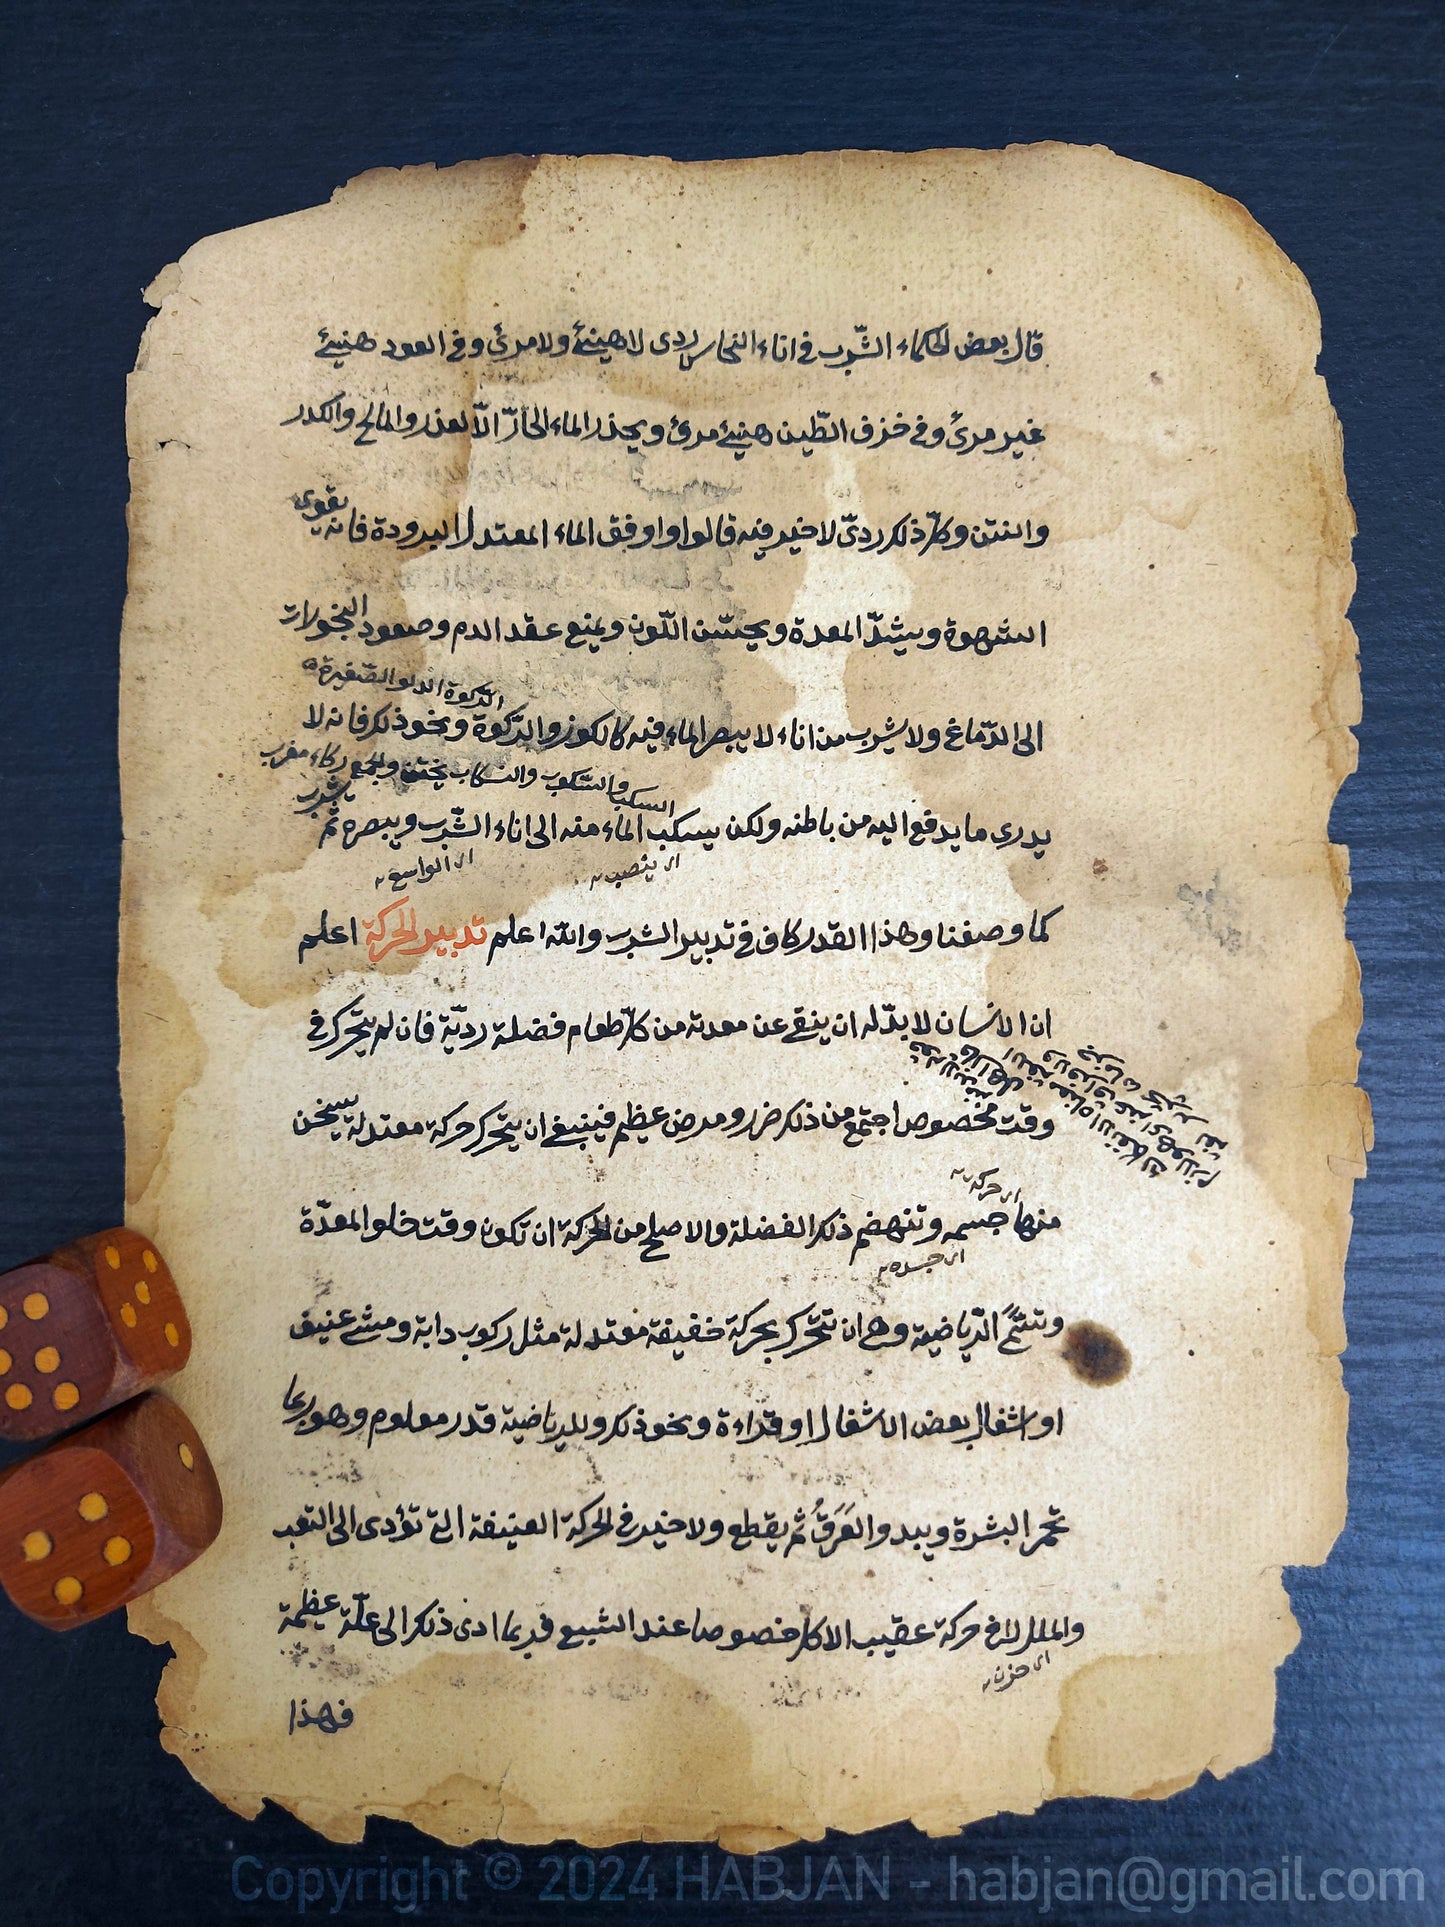 قال بعض الحكماء الشّرب في اناء النحاس ردى لا هينئ ولا مرئ وفي العود هنيئ
غير مرئ وفي خزف الطّين هنيئ مرئ ويحذر الماء الحارّ الّا لعذر والمالح والكدر
والنتن وكلّ ذلك رديّ لا خير فيه قالوا واوفق الماء المعتدل البرودة فانه يقوى
الشهوة ويشدّ المعدة ويحسّن اللّون ويمنع عقد الدم وصعود البخولات
الدّكوة الدلو الصّغيرة
الى الدّماغ ولا يشرب من اناء لا يبصر الماء فيه كالكوز والدّكوة ونحو ذلك فانه لا
السكب والسّكوب والنسكاب
يدرى ما يدفع اليه من باطنه ولكن يسكب الماء منه الى اناء الشّرب ويبصره ثم يشرب
اى ينصب اى الواسع
كما وصفنا وهذا القدر كاف في تدبير الشرب والله اعلم تدبير الحركة اعلم
ان الانسان لا بدّ له ان ينقى عن معدته من كلّ طعام فضلة رديّة فان لم يتحرك في
وقت مخصوص اجتمع من ذلك ضرر ومرض عظيم فينبغى ان يتحرك حركة معتدلة يسخن
اى حركة
منها جسمه وتنهضم ذلك الفضلة والاصلح من الحركة ان تكون وقت خلو المعدّة
اى جسده
وتتمّ الرّياضية وهى ان تتحرك بحركة خفيفة معتدلة مثل ركوب دابة ومشى عنيف
او اشغال بعض الاشغال او قراءة ونحو ذلك وللرياضية قدر معلوم وهو ربما
تحمر البشرة ويبدو العَرَقُ ثم يقطع ولا خير في الحركة العنيفة التى تؤدى الى التعب
والملل حركة عقيب الاكل خصوصا عند الشبع فربما ادى ذلك الى علّة عظيمة
اى حزن
فهذا
Copyright © 2024 HABJAN - habjan@gmail.com